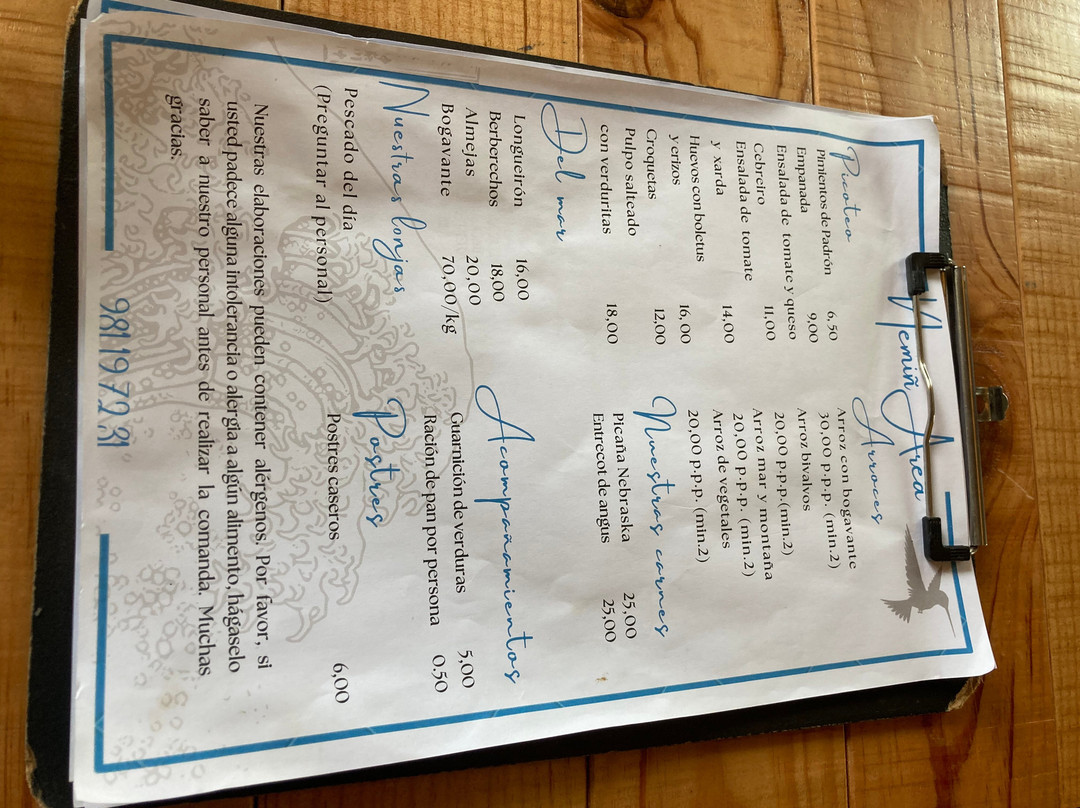 Nemiñ Area
Picoteo
Pimientos de Padrón 6,50
Empanada 9,00
Ensalada de tomate y queso
Cebreiro 11,00
Ensalada de tomate
y xarda 14,00
Huevos con boletus
y erizos 16,00
Croquetas 12,00
Pulpo salteado
con verduritas 18,00
Del mar
Longueirón 16,00
Berberechos 18,00
Almejas 20,00
Bogavante 70,00/kg
Nuestras lonjas
Pescado del día
(Preguntar al personal)
Arroces
Arroz con bogavante
30,00 p.p.p. (min.2)
Arroz bivalvos
20,00 p.p.p.(min.2)
Arroz mar y montaña
20,00 p.p.p. (min.2)
Arroz de vegetales
20,00 p.p.p. (min.2)
Nuestras carnes
Picaña Nebraska 25,00
Entrecot de angus 25,00
Acompañamientos
Guarnición de verduras 5,00
Ración de pan por persona 0,50
Postres
Postres caseros 6,00
Nuestras elaboraciones pueden contener alérgenos. Por favor, si
usted padece alguna intolerancia o alergia a algún alimento, hágaselo
saber a nuestro personal antes de realizar la comanda. Muchas
gracias.
981 19 72 31